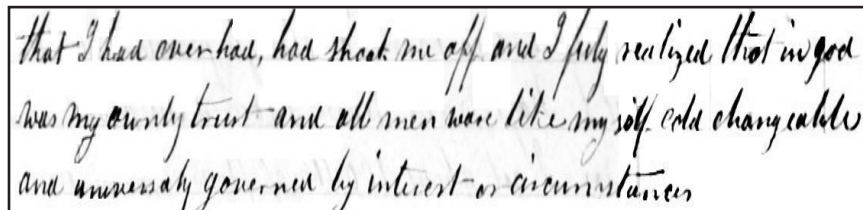 that I had ever had, had shook me off and I fuly realized that in god
was my ownly trust and all men ware like my self cold changeable
and universaly governed by interest or circumstances